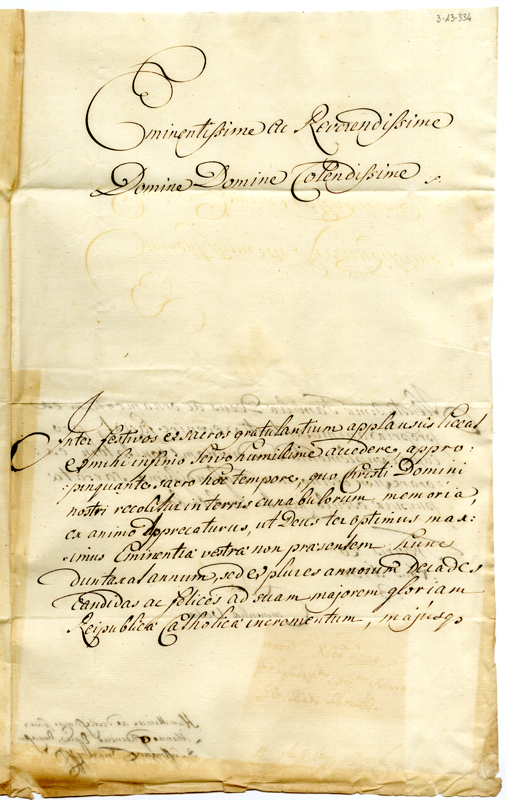 3-13-334
Eminentissime ac Reverendissime
Domine Domine Colendissime
Inter festivos et sacros gratulantium applausus liceat
et mihi infimo servo humillime accedere, appro:
:pinquante sacro hoc tempore, quo Christi Domini
nostri recolitur in terris cunabulorum memoria,
ex animo apprecaturus, ut Deus ter optimus max:
:imus Eminentiæ vestræ non præsentem hunc
duntaxat annum, sed et plures annorum decades
candidas ac felices ad suam majorem gloriam
Reipublicæ Catholicæ incrementum, majusq3